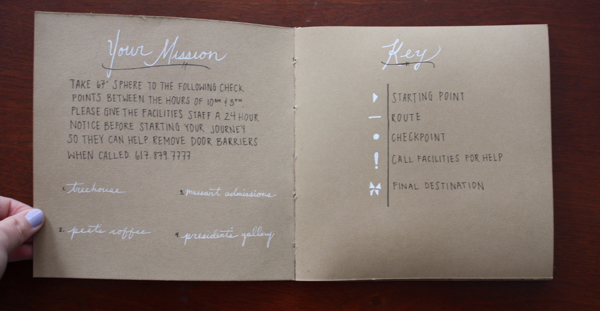 Your Mission
TAKE 67" SPHERE TO THE FOLLOWING CHECK
POINTS BETWEEN THE HOURS OF 10AM & 3PM.
PLEASE GIVE THE FACILITIES STAFF A 24 HOUR
NOTICE BEFORE STARTING YOUR JOURNEY
SO THEY CAN HELP REMOVE DOOR BARRIERS
WHEN CALLED. 617.879.7777
1. treehouse
3. massart admissions
2. peets coffee
4. presidents gallery
Key
STARTING POINT
ROUTE
CHECKPOINT
! CALL FACILITIES FOR HELP
FINAL DESTINATION